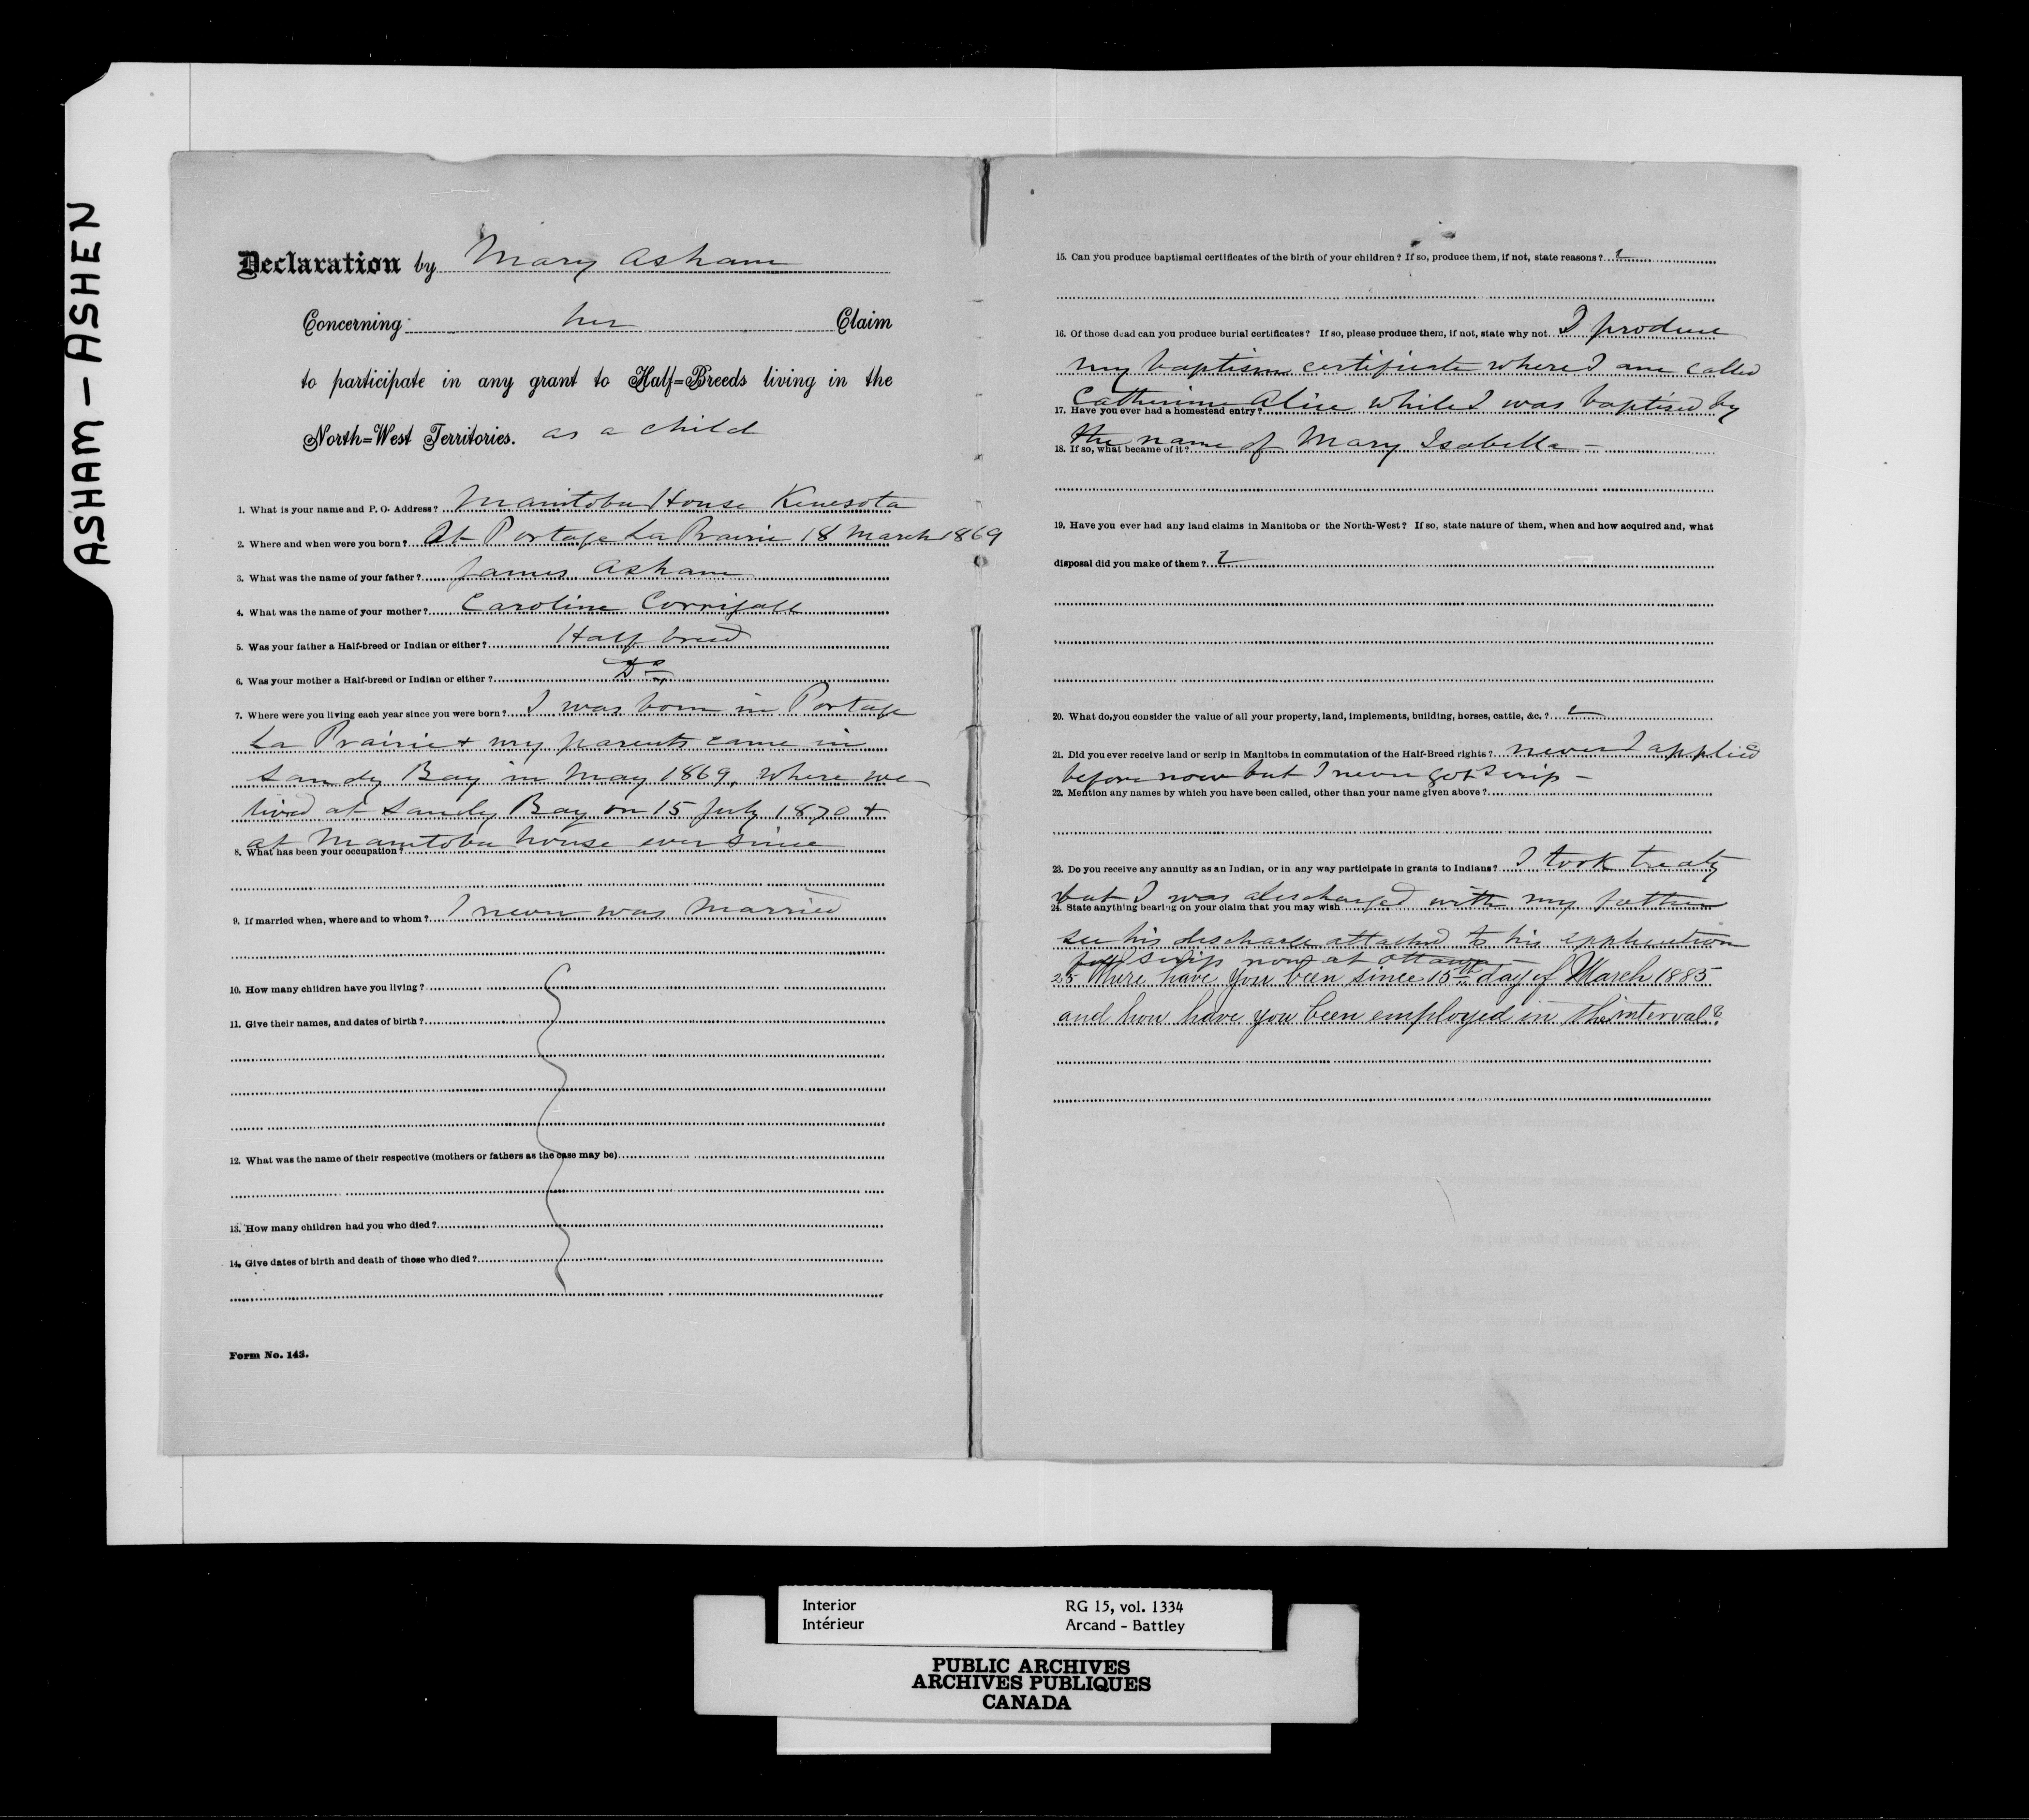 ASHAM — ASHEN
Declaration by Mary Asham
Concerning her Claim
to participate in any grant to Half=Breeds living in the
North=West Territories. as a child
1. What is your name and P. O. Address? Manitoba House Kinesota
2. Where and when were you born? At Portage La Prairie 18 March 1869
3. What was the name of your father? James Asham
4. What was the name of your mother? Caroline Corrigall
5. Was your father a Half-breed or Indian or either? Half breed
6. Was your mother a Half-breed or Indian or either? Do
7. Where were you living each year since you were born? I was born in Portage
La Prairie + my parents came in
Sandy Bay in May 1869, where we
lived at Sandy Bay on 15 July 1870 +
at Manitoba house ever since
8. What has been your occupation?
9. If married when, where and to whom? I never was married
10. How many children have you living?
11. Give their names, and dates of birth?
12. What was the name of their respective (mothers or fathers as the case may be)
13. How many children had you who died?
14. Give dates of birth and death of those who died?
Form No. 143.
15. Can you produce baptismal certificates of the birth of your children? If so, produce them, if not, state reasons?
16. Of those dead can you produce burial certificates? If so, please produce them, if not, state why not. I produce
my baptism certificate where I am called
Catherine Alice while I was baptised by
17. Have you ever had a homestead entry?
the name of Mary Isabella —
18. If so, what became of it?
19. Have you ever had any land claims in Manitoba or the North-West? If so, state nature of them, when and how acquired and, what
disposal did you make of them?
20. What do you consider the value of all your property, land, implements, building, horses, cattle, &c.?
21. Did you ever receive land or scrip in Manitoba in commutation of the Half-Breed rights? never I applied
before now but I never got scrip —
22. Mention any names by which you have been called, other than your name given above?
23. Do you receive any annuity as an Indian, or in any way participate in grants to Indians? I took treaty
but I was discharged with my father
24. State anything bearing on your claim that you may wish
see his discharge attached to his application
for scrip now at Ottawa —
25 Where have you been since 15th day of March 1885
and how have you been employed in the interval?
Interior RG 15, vol. 1334
Intérieur Arcand - Battley
PUBLIC ARCHIVES
ARCHIVES PUBLIQUES
CANADA